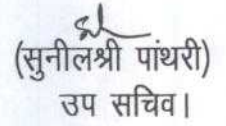 (सुनीलश्री पांथरी)
उप सचिव।